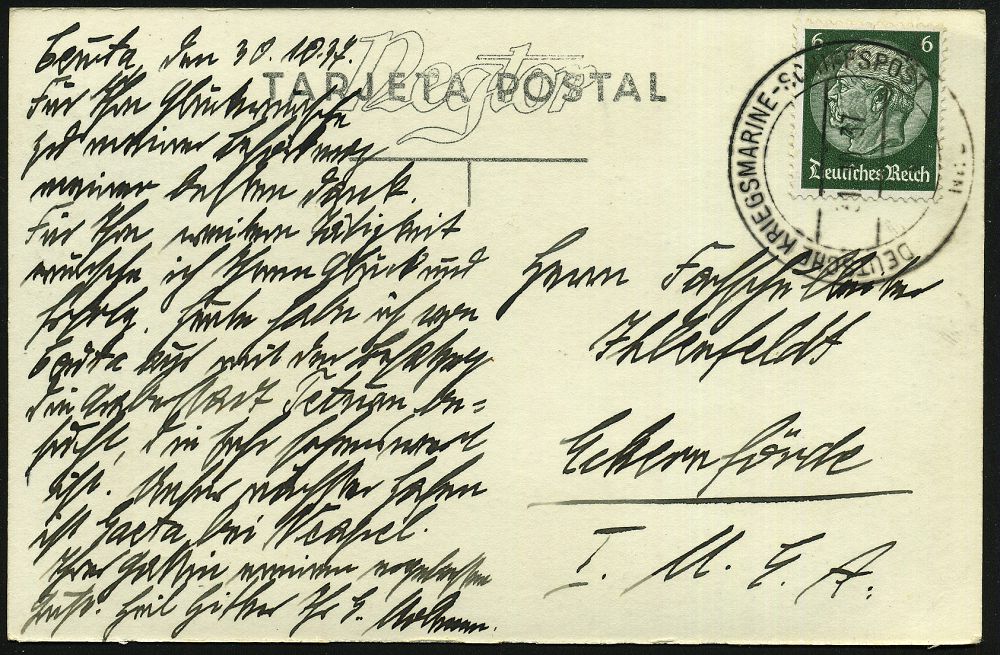 Ceuta, den 30.10.37.
Für Ihre Glückwünsche
zu meiner Beförderung
meinen besten Dank.
Für Ihre weitere Tätigkeit
wünsche ich Ihnen Glück und
Erfolg. Heute habe ich von
Ceuta aus mit der Besatzung
die Araberstadt Tetuan be=
sucht, die sehr sehenswert
ist. Unser nächster Hafen
ist Gaeta bei Neapel.
Ihrer Gattin meinen ergebensten
Gruß. Heil Hitler Ihr E.
Negtor
TARJETA POSTAL
6 6
Deutsches Reich
DEUTSCHE KRIEGSMARINE-SCHIFFSPOST
Herrn Fachschulleiter
Ihlenfeldt
Eckernförde
I. U. E. A.